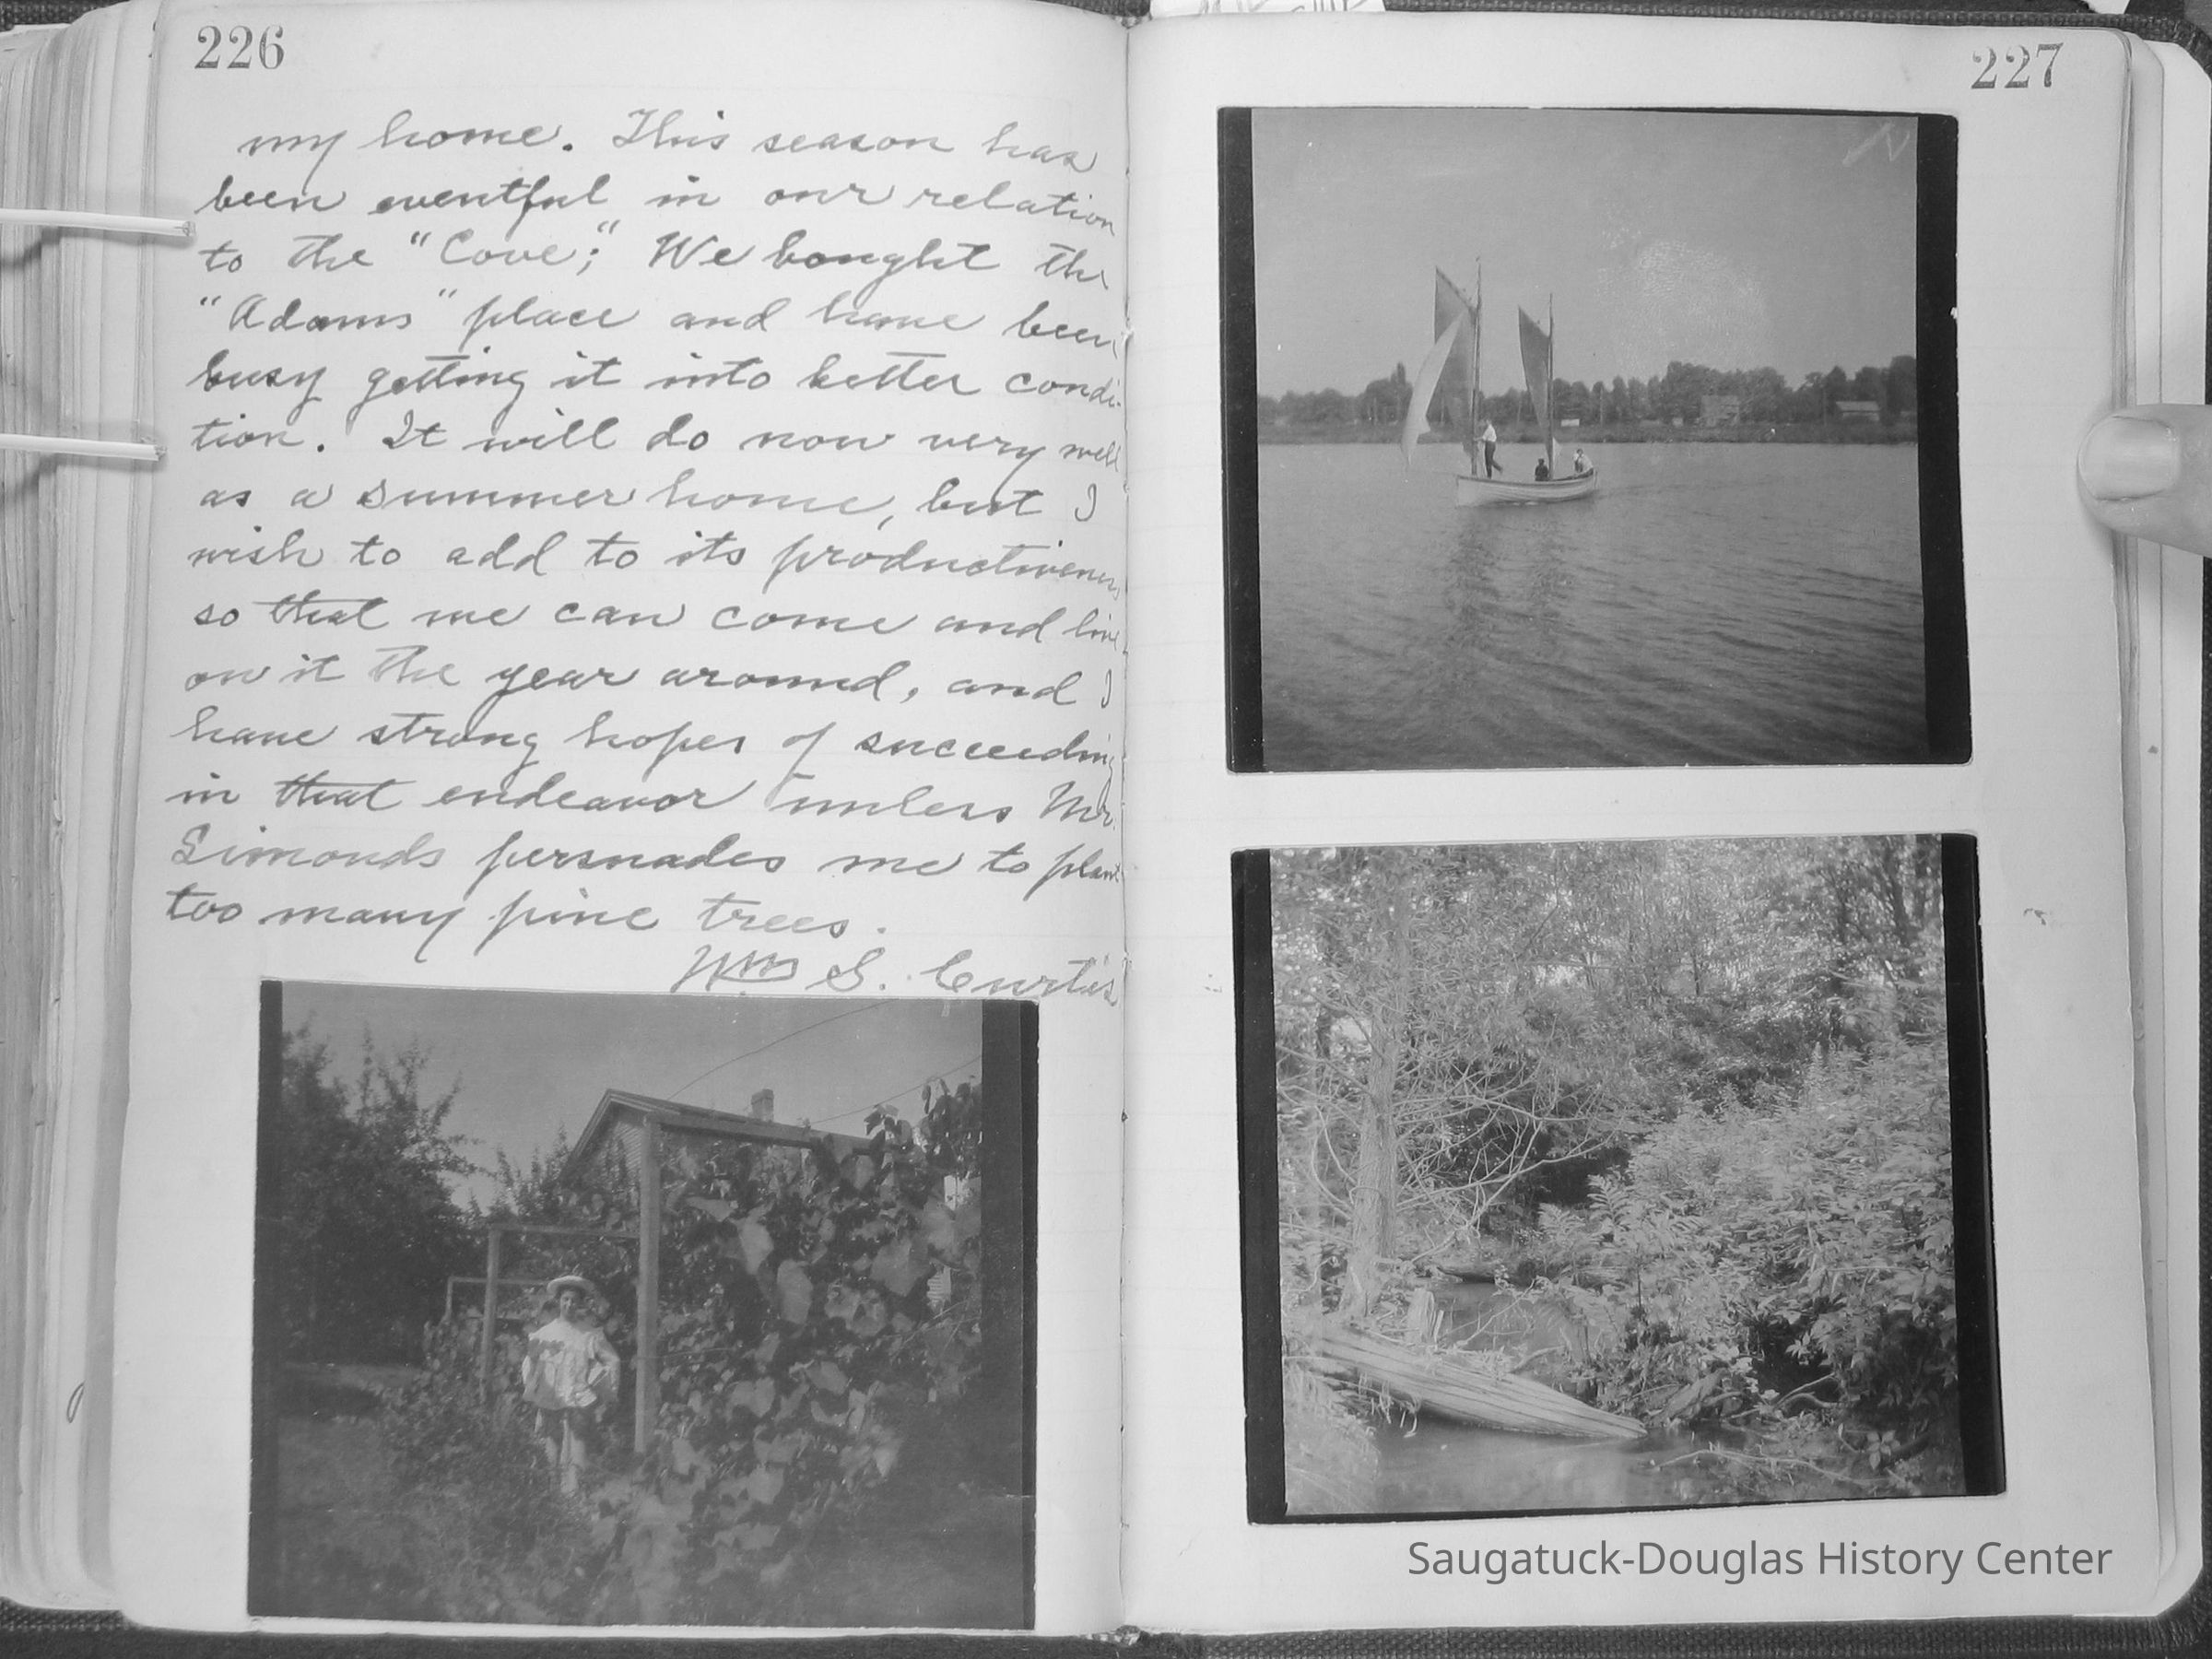 226
my home. This season has
been eventful in our relation
to the "Cove;" We bought the
"Adams" place and have been
busy getting it into better condi-
tion. It will do now very well
as a summer home, but I
wish to add to its productiveness
so that we can come and live
on it the year around, and I
have strong hopes of succeeding
in that endeavor unless Mr.
Simonds persuades me to plant
too many pine trees.
Wm S. Curtis
227
Saugatuck-Douglas History Center